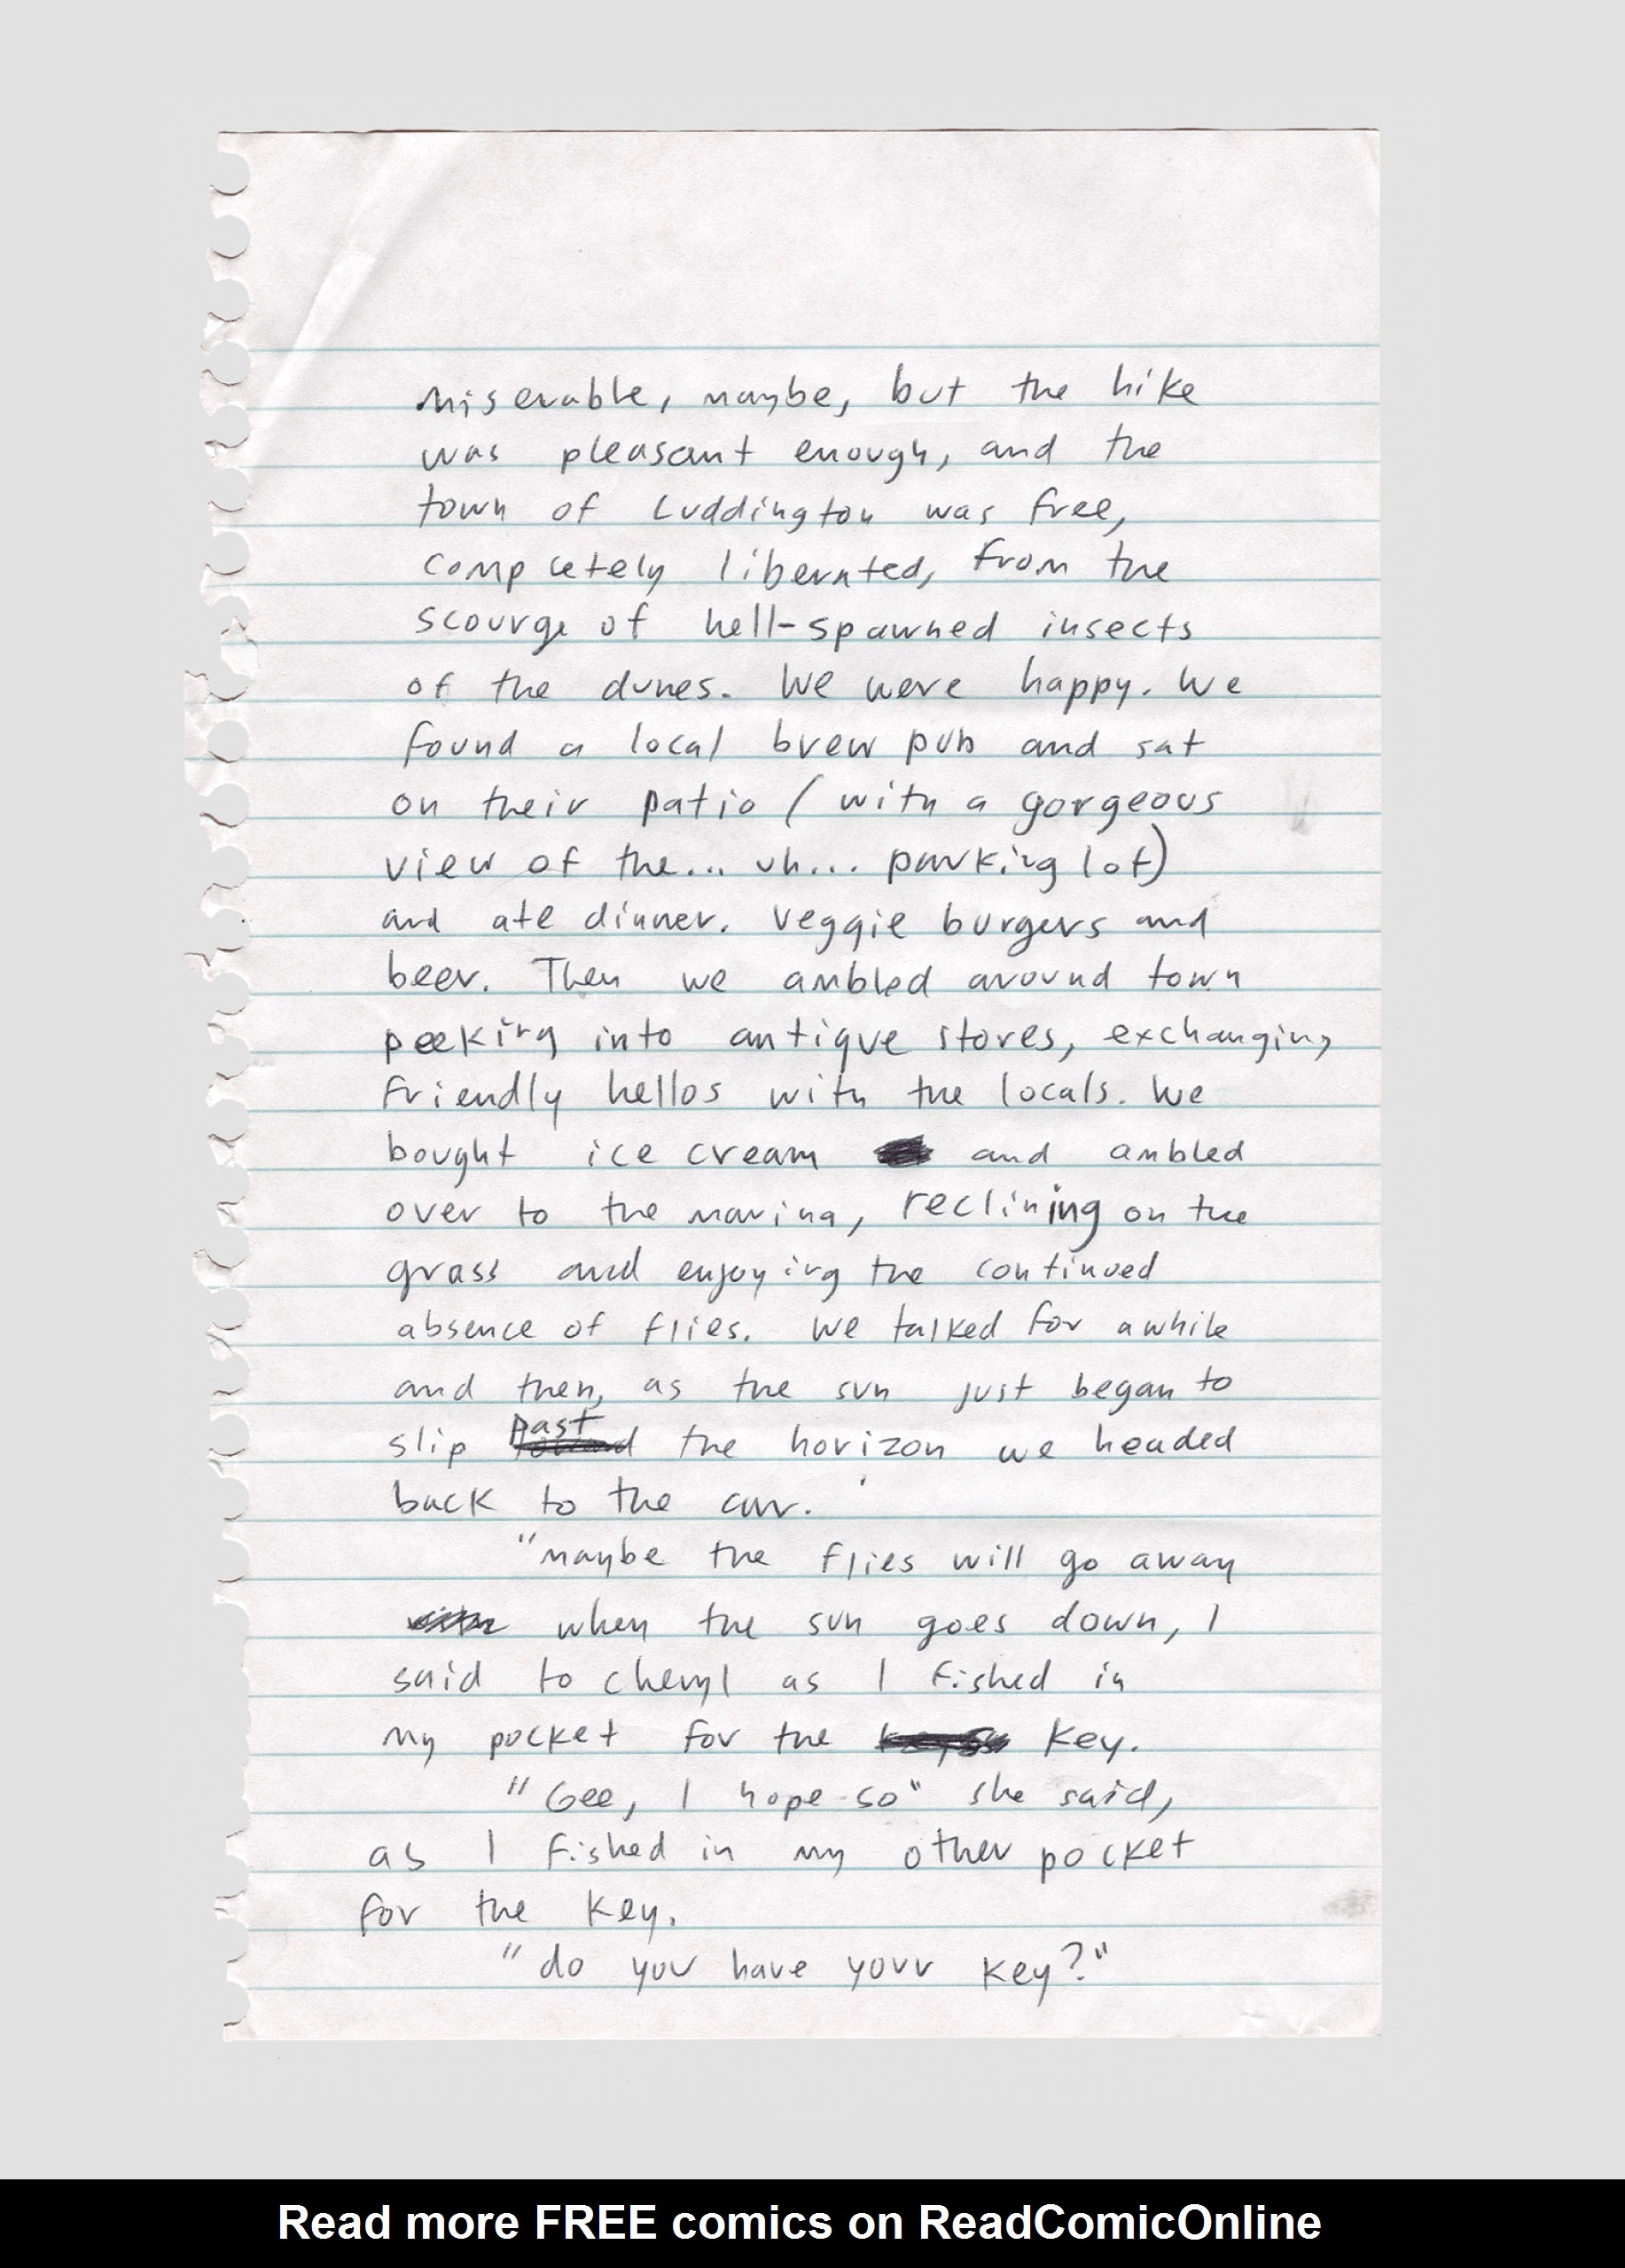 miserable, maybe, but the hike
was pleasant enough, and the
town of Luddington was free,
completely liberated, from the
scourge of hell-spawned insects
of the dunes. We were happy. We
found a local brew pub and sat
on their patio (with a gorgeous
view of the... uh... parking lot)
and ate dinner. Veggie burgers and
beer. Then we ambled around town
peeking into antique stores, exchanging
friendly hellos with the locals. We
bought ice cream and ambled
over to the marina, reclining on the
grass and enjoying the continued
absence of flies. We talked for awhile
and then, as the sun just began to
slip past the horizon we headed
back to the car.
"maybe the flies will go away
when the sun goes down, I
said to cheryl as I fished in
my pocket for the key.
"Gee, I hope so" she said,
as I fished in my other pocket
for the key.
"do you have your key?"
Read more FREE comics on ReadComicOnline